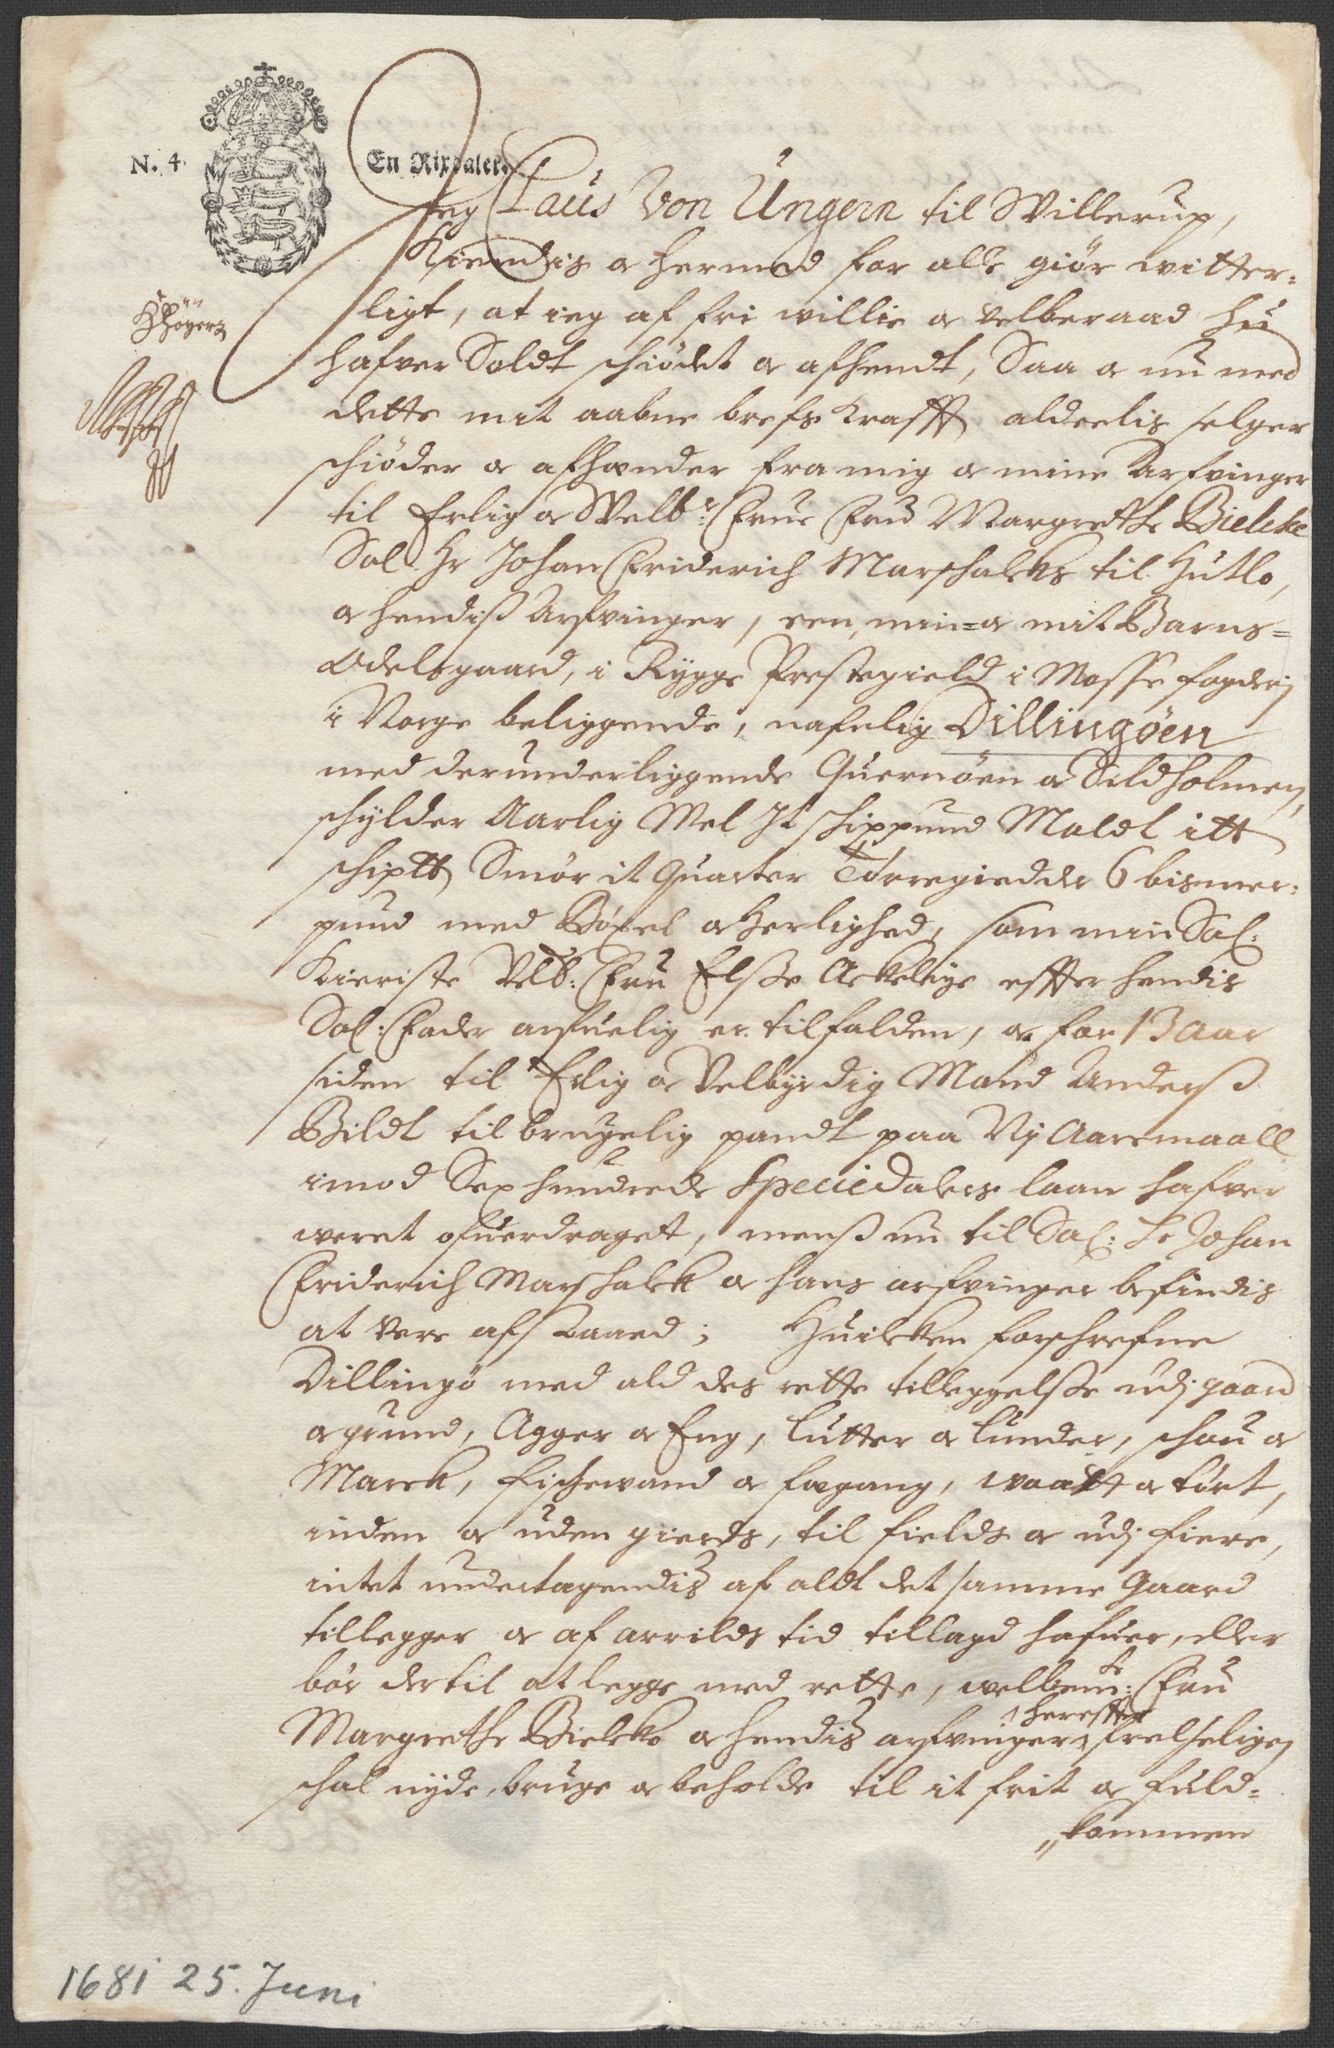 N. 4.
En Rixdaler.
Jeg Claus Von Ungern til Willerup,
Kiendis a hermed for alle giør witter-
ligt, at ieg af fri willie a velberaad hu
hafver Soldt schiødet a afhendt, Saa a nu med
dette mit aabne brefs krafft aldeelis selger
schiøder a afhænder fra mig a mine Arfvinger
til Erlig a Welb: Frue Fru Margrethe Bielcke
Sal. Hr Johan Friderich Marschalcks til Hutlo,
a hendiß Arfvinger, een, min= a mit Barns=
Odelsgaard, i Rygge Prestegield i Mosse fogderj
i Norge beliggende, nafnlig Dillingøen
med derunderliggende Quernøen a Sildholmen,
schylder Aarlig Mel It schippund Maldt itt
schiptt Smør it Quarter Törregiedder 6 bismer-
pund med Böxel a Herlighed, som min Sal:
Kieriste Velb: Fru Elsse Ackeleye effter hendis
Sal: Fader arfuelig er tilfalden, a for 13 Aar
siden til Erlig a Velbyrdig Mand Anderß
Bildt til brugelig pandt paa Nj Aarsmaall
imod Sex hundrede Speciedalers laan hafver
weret ofuerdraget, menß nu til Sal: Hr Johan
Friderich Marschalck a hans arfvinger befindis
at vere afstaaed; Huilcken forschrefne
Dillingø med ald des rette tilleggelsse udj gaard
a grund, Agger a Eng, lutter a lunder, schou a
Marck, fischevand a fægang, waatt a tört,
inden a uden gierds, til fields a udj fiere,
intet undertagendiß af aldt det samme Gaard
tillegger a af arrilds tid tillagd hafuer, eller
bör dertil at legge med rette, welbemte: Fru
Margrethe Bielcke a hendiß arfvinger hereffter frelseligen
schal nyde, bruge a beholde til it frit a fuld=
kommen
1681 25. Juni